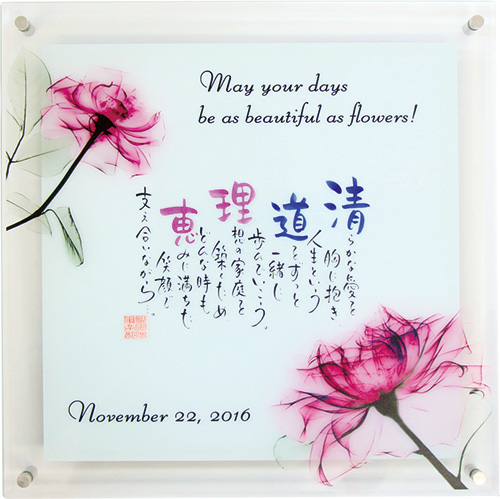 May your days
be as beautiful as flowers!
清らかな愛を
胸に抱き
人生という
道をずっと
一緒に
歩んでいこう。
理想の家庭を
築くため
どんな時も
恵みに満ちた
笑顔で
支え合いながら…
November 22, 2016